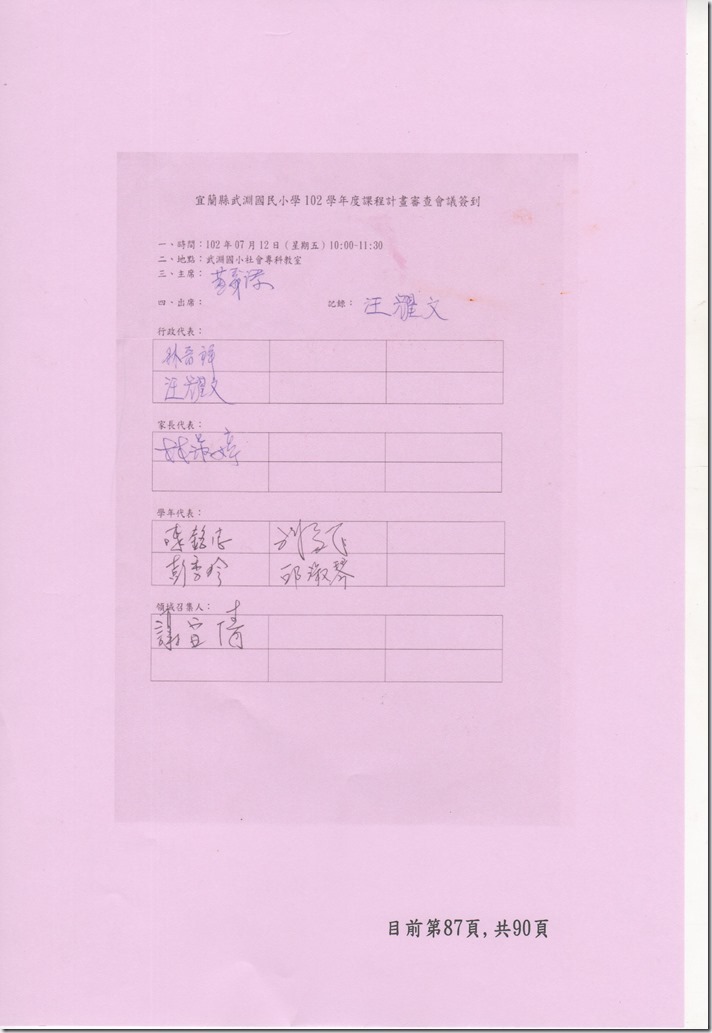 宜蘭縣武淵國民小學102學年度課程計畫審查會議簽到
一、時間：102年07月12日（星期五）10:00-11:30
二、地點：武淵國小社會專科教室
三、主席：
四、出席： 記錄：汪耀文
行政代表：
汪耀文
家長代表：
學年代表：
邱淑琴
領域召集人：
謝宜倩
目前第87頁,共90頁